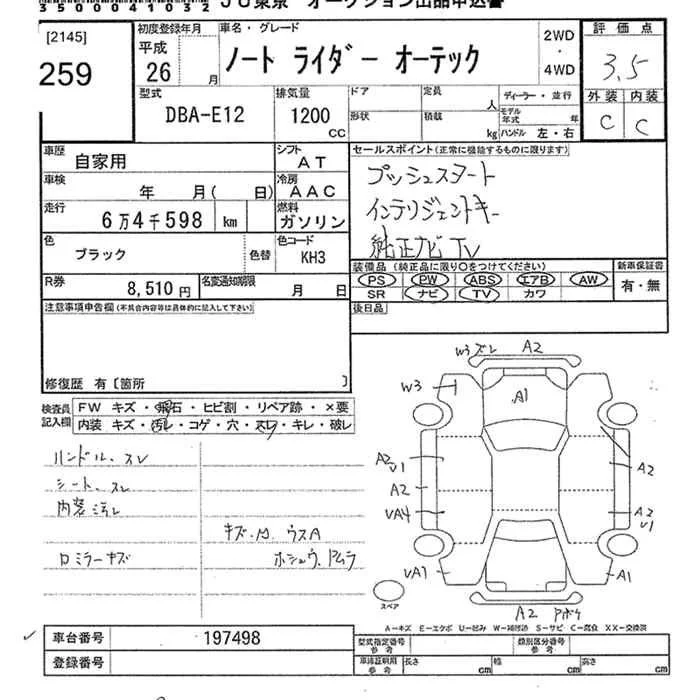 3500041032 JU東京 オークション出品申込書
[2145]
259
初度登録年月
平成
26 月
車名・グレード
ノート ライダー オーテック
2WD
・
4WD
評価点
3.5
外装 内装
C C
型式
DBA-E12
排気量
1200
CC
ドア
形状
定員
人
積載
kg
ディーラー・並行
モデル年式 年
ハンドル 左・右
車歴
自家用
シフト
AT
車検
年 月(日)
冷房
AAC
走行
6万4千598 km
燃料
ガソリン
色
ブラック
色替
色コード
KH3
R券
8,510円
名変通知期限
月 日
セールスポイント(正常に機能するものに限ります)
プッシュスタート
インテリジェントキー
純正ナビ TV
装備品(純正品に限り○をつけてください)
PS PW ABS エアB AW
SR ナビ TV カワ
新車保証書
有・無
注意事項申告欄(不具合内容等は具体的に記入して下さい)
後日品
修復歴 有〔箇所 〕
検査員記入欄
FW キズ・飛石・ヒビ割・リペア跡・×要
内装 キズ・汚レ・コゲ・穴・スレ・キレ・破レ
ハンドル、スレ
シート、スレ
内装汚レ
ロミラーキズ
キズ、凹、ウスA
ホシュウ、ムラ
W3 ズレ A2
W3
A1
A2
V1
A2
VA4
VA1
A2
A2
V1
A1
スペア
A2 Pボケ
A-キズ E-エクボ U-凹み W-補修跡 S-サビ C-腐食 XX-交換済
車台番号
197498
登録番号
型式指定番号
参考
類別区分番号
参考
車庫証明用
参考
長さ cm 幅 cm 高さ cm